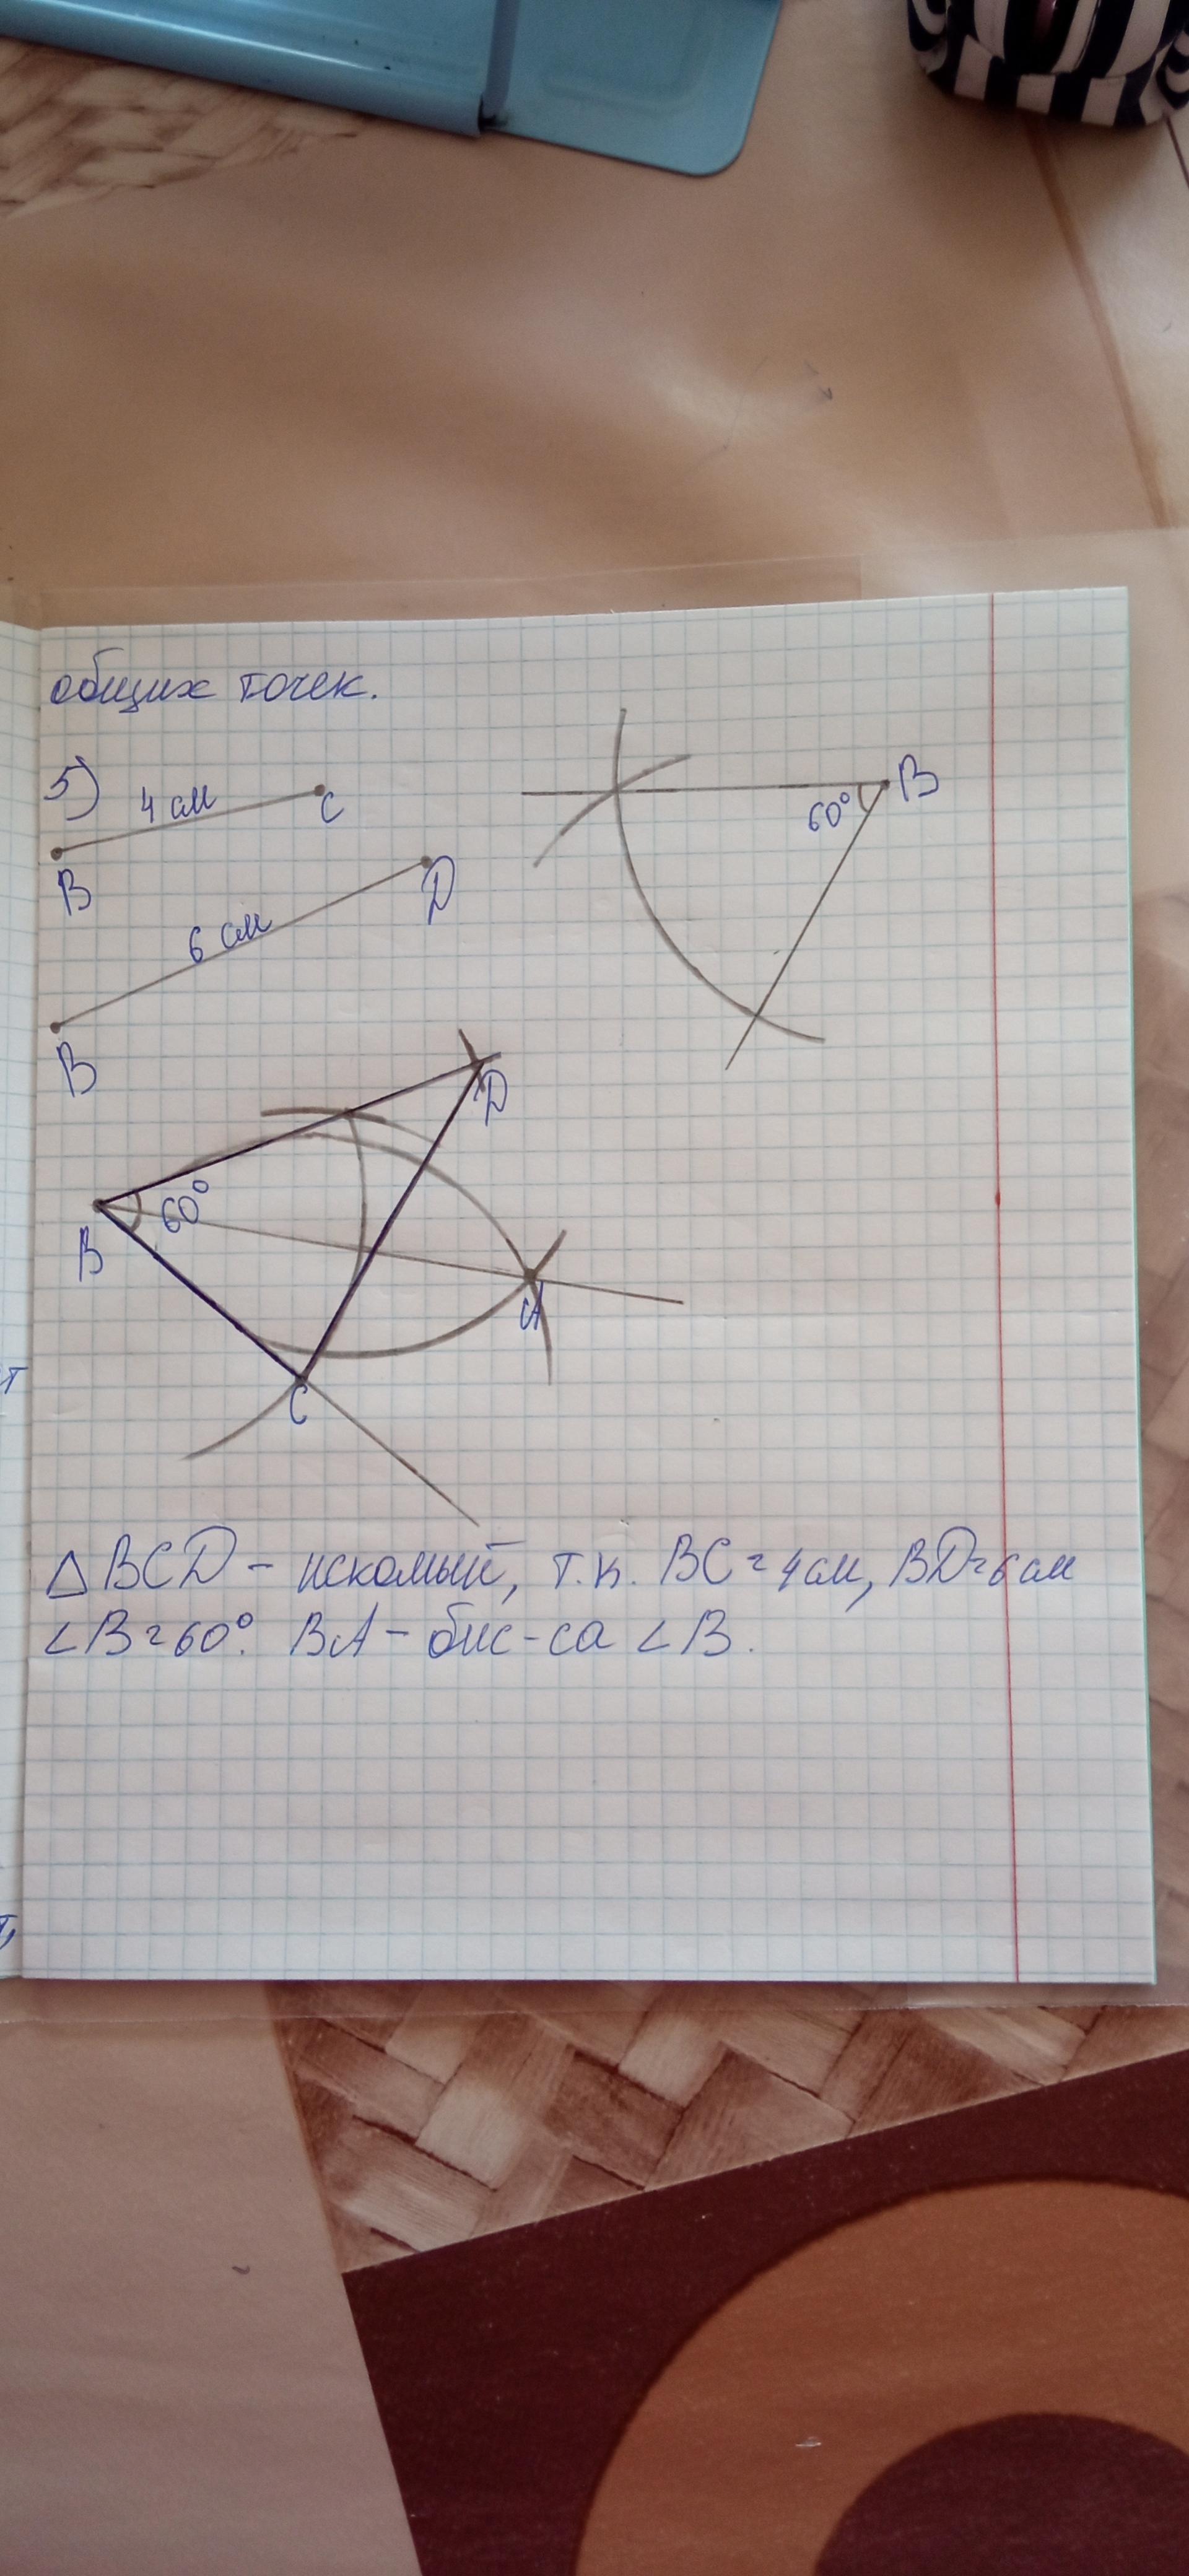 общих точек.
5) 4 см C
B
6 см D
B
B
60°
D
60°
B
A
C
△BCD - искомый, т.к. BC=4см, BD=6см
∠B=60°. BA - бис-са ∠B.